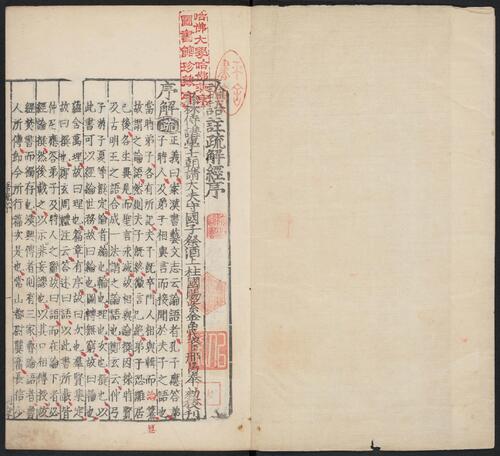 哈佛大學哈佛燕京
圖書館珍藏印
論語註疏解經序
翰林侍講學士朝請大夫守國子祭酒上柱國賜紫金魚袋臣邢昺等奉勑校
序解疏正義曰案漢書藝文志云論語者孔子應答弟
子時人及弟子相與言而接聞於夫子之語也
當時弟子各有所記夫子既卒門人相與輯而論篹
故謂之論語然則夫子既終微言已絕弟子恐離居
已後各生異見而聖言永滅故相與論撰因採時賢
及古明王之語合成一法謂之論語也鄭玄云仲弓
子游子夏等撰定論者綸也輪也理也次也撰也以
此書可以經綸世務故曰綸也圓轉無窮故曰輪也
蘊含萬理故曰理也篇章有序故曰次也群賢集定
故曰撰也鄭玄周禮注云答述曰語以此書所載皆
仲尼應答弟子及時人之辭故曰語而在論下者必
經論撰然後載之以示非妄謬也以其口相傳授故
經焚書而獨存也漢興傳者則有三家魯論語者魯
人所傳即今所行篇次是也常山都尉龔奮長信少